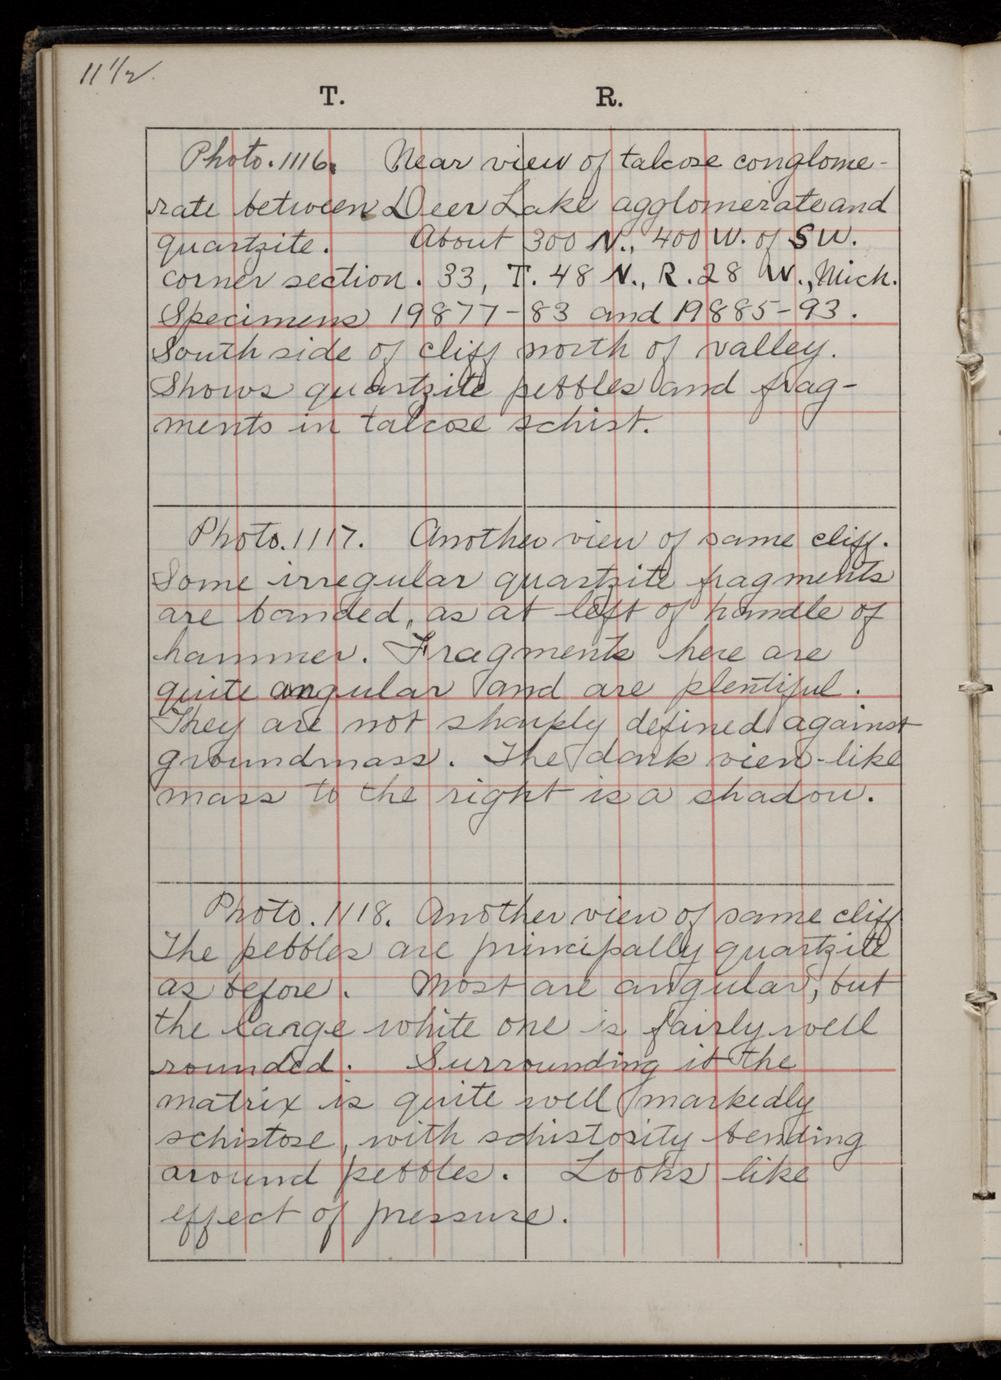 11 1/2
T. R.
Photo. 1116. Near view of talcose conglome-
rate between Deer Lake agglomerate and
quartzite. About 300 N., 400 W. of SW.
corner section. 33, T. 48 N., R. 28 W., Mich.
Specimens 19877-83 and 19885-93.
South side of cliff north of valley.
Shows quartzite pebbles and frag-
ments in talcose schist.
Photo. 1117. Another view of same cliff.
Some irregular quartzite fragments
are banded, as at left of handle of
hammer. Fragments here are
quite angular and are plentiful.
They are not sharply defined against
groundmass. The dark vien-like
mass to the right is a shadow.
Photo. 1118. Another view of same cliff
The pebbles are principally quartzite
as before. Most are angular, but
the large white one is fairly well
rounded. Surrounding it the
matrix is quite well markedly
schistose, with schistosity bending
around pebbles. Looks like
effect of pressure.